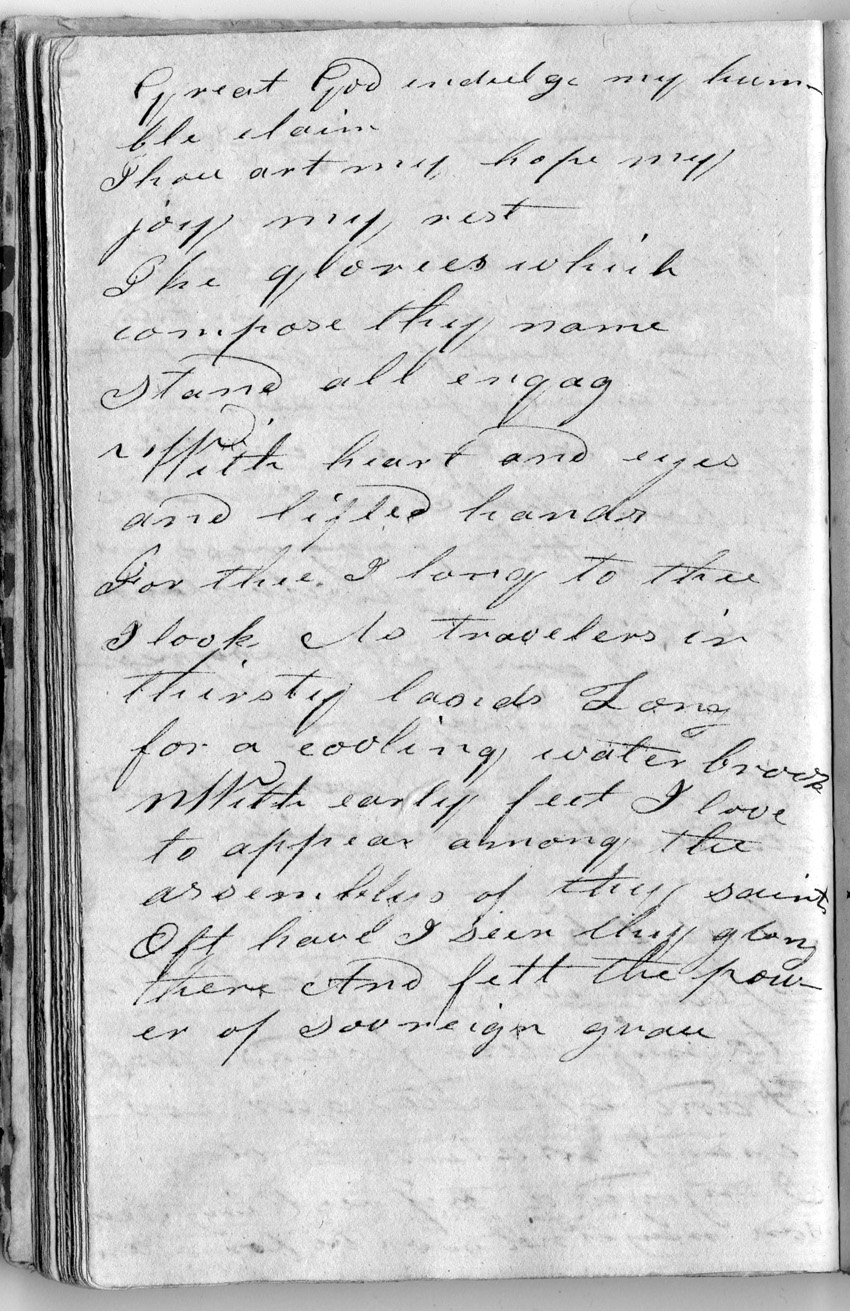 Great God indulge my hum-
ble claim
Thou art my hope my
joy my rest
The glories which
compose thy name
Stand all engag
With heart and eyes
and lifted hands
For thee I long to thee
I look As travelers in
thirsty lands Long
for a cooling water brook
With early feet I love
to appear among the
assemblys of thy saints
Oft have I seen thy glory
there And felt the pow-
er of sovreign grace